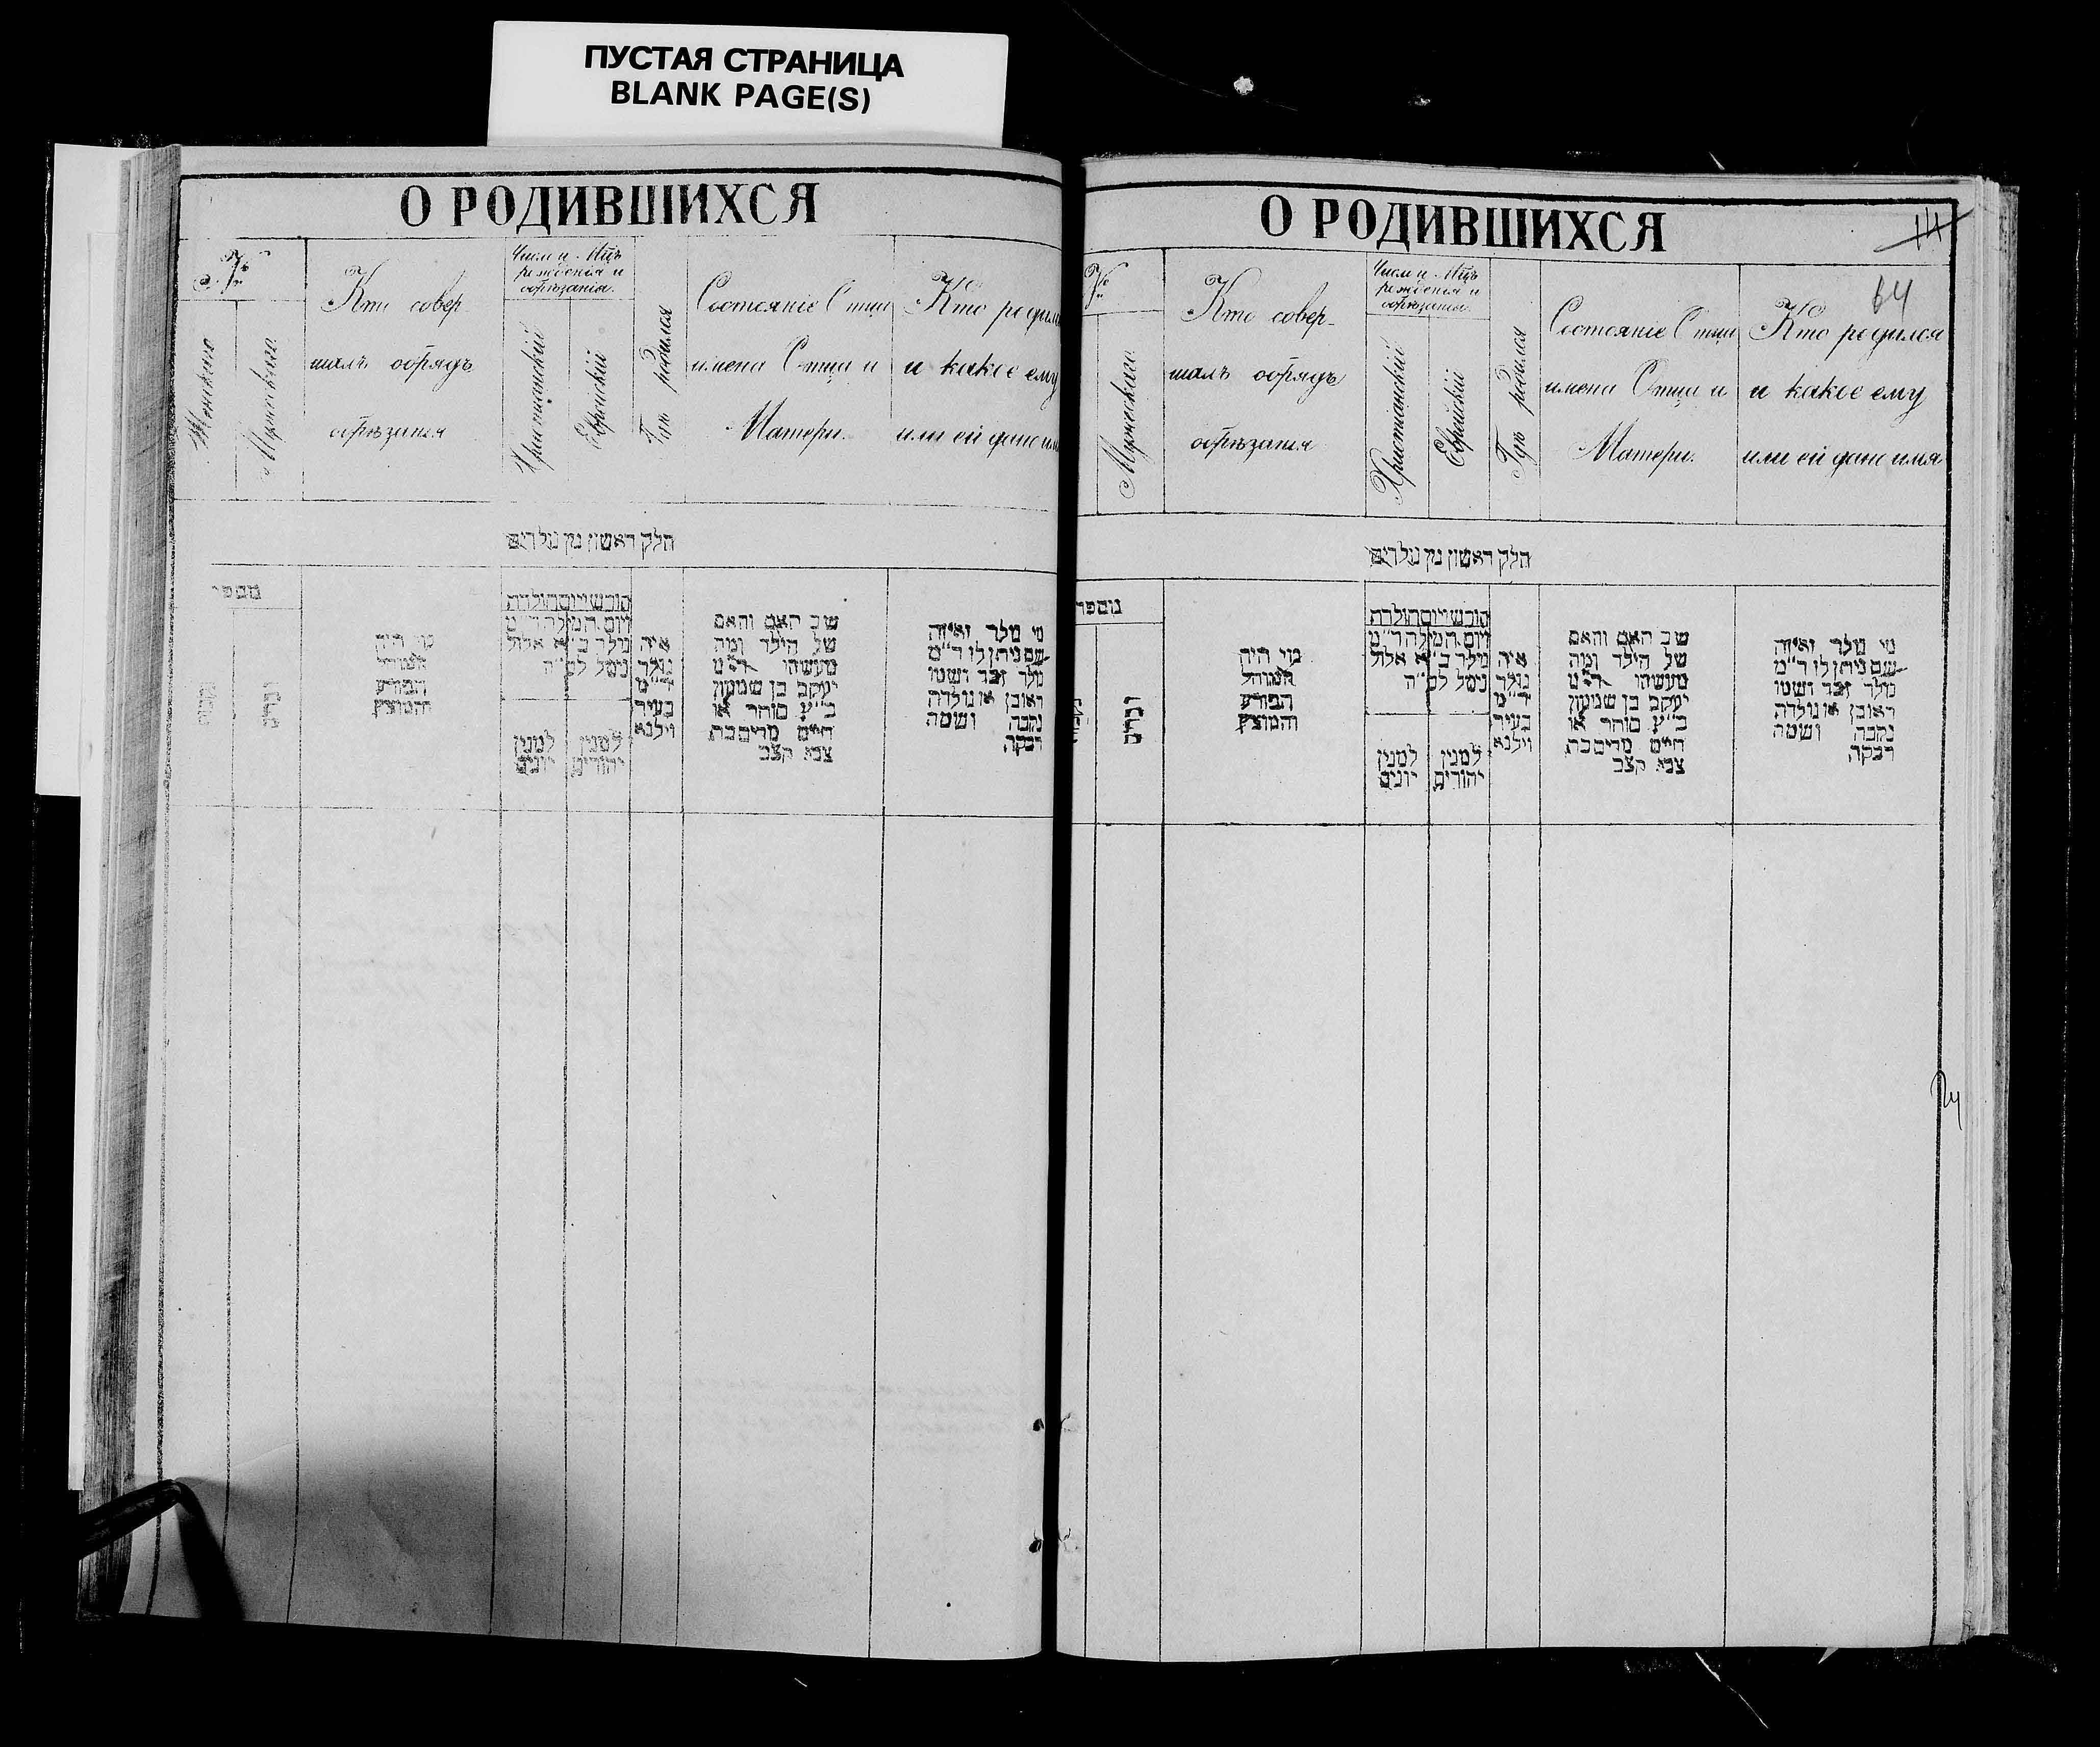 ПУСТАЯ СТРАНИЦА
BLANK PAGE(S)
О РОДИВШИХСЯ
№
Женскаго
Мужескаго
Кто совер-
шалъ обрядъ
обрѣзанія
Число и Мѣц.
рожденія и
обрѣзанія.
Христіанскій
Еврейскій
Гдѣ родился
Состояніе Отца
имена Отца и
Матери.
Кто родил
и какое ему
или ей дано им
חלק ראשון מן נולדים
מספר
מי היה
המוהל
הפורע
והמוצץ
חובש ויום תולדת
ויום המילה ד"מ
נולד ב"א אלול
נימל לס"ה
למנין
יונים
למנין
יהודים
איה
נולד
ד"מ
בעיר
וילנא
שב האם והאם
של הילד ומה
מעשהו ד"מ
יעקב בן שמעון
ב"ע סוחר או
חיים מרים בת
צבא קצב
מי נולד ואיזה
שם ניתן לו ד"מ
נולד זכר ושמו
ראובן או נולדה
נקבה ושמה
רבקה
О РОДИВШИХСЯ
64
№
Мужескаго
Кто совер-
шалъ обрядъ
обрѣзанія
Число и Мѣц.
рожденія и
обрѣзанія.
Христіанскій
Еврейскій
Гдѣ родился
Состояніе Отца
имена Отца и
Матери.
Кто родился
и какое ему
или ей дано имя
חלק ראשון מן נולדים
מספר
זכרים
מי היה
המוהל
הפורע
והמוצץ
חובש ויום תולדת
ויום המילה ד"מ
נולד ב"א אלול
נימל לס"ה
למנין
יונים
למנין
יהודים
איה
נולד
ד"מ
בעיר
וילנא
שב האם והאם
של הילד ומה
מעשהו ד"מ
יעקב בן שמעון
ב"ע סוחר או
חיים מרים בת
צבא קצב
מי נולד ואיזה
שם ניתן לו ד"מ
נולד זכר ושמו
ראובן או נולדה
נקבה ושמה
רבקה